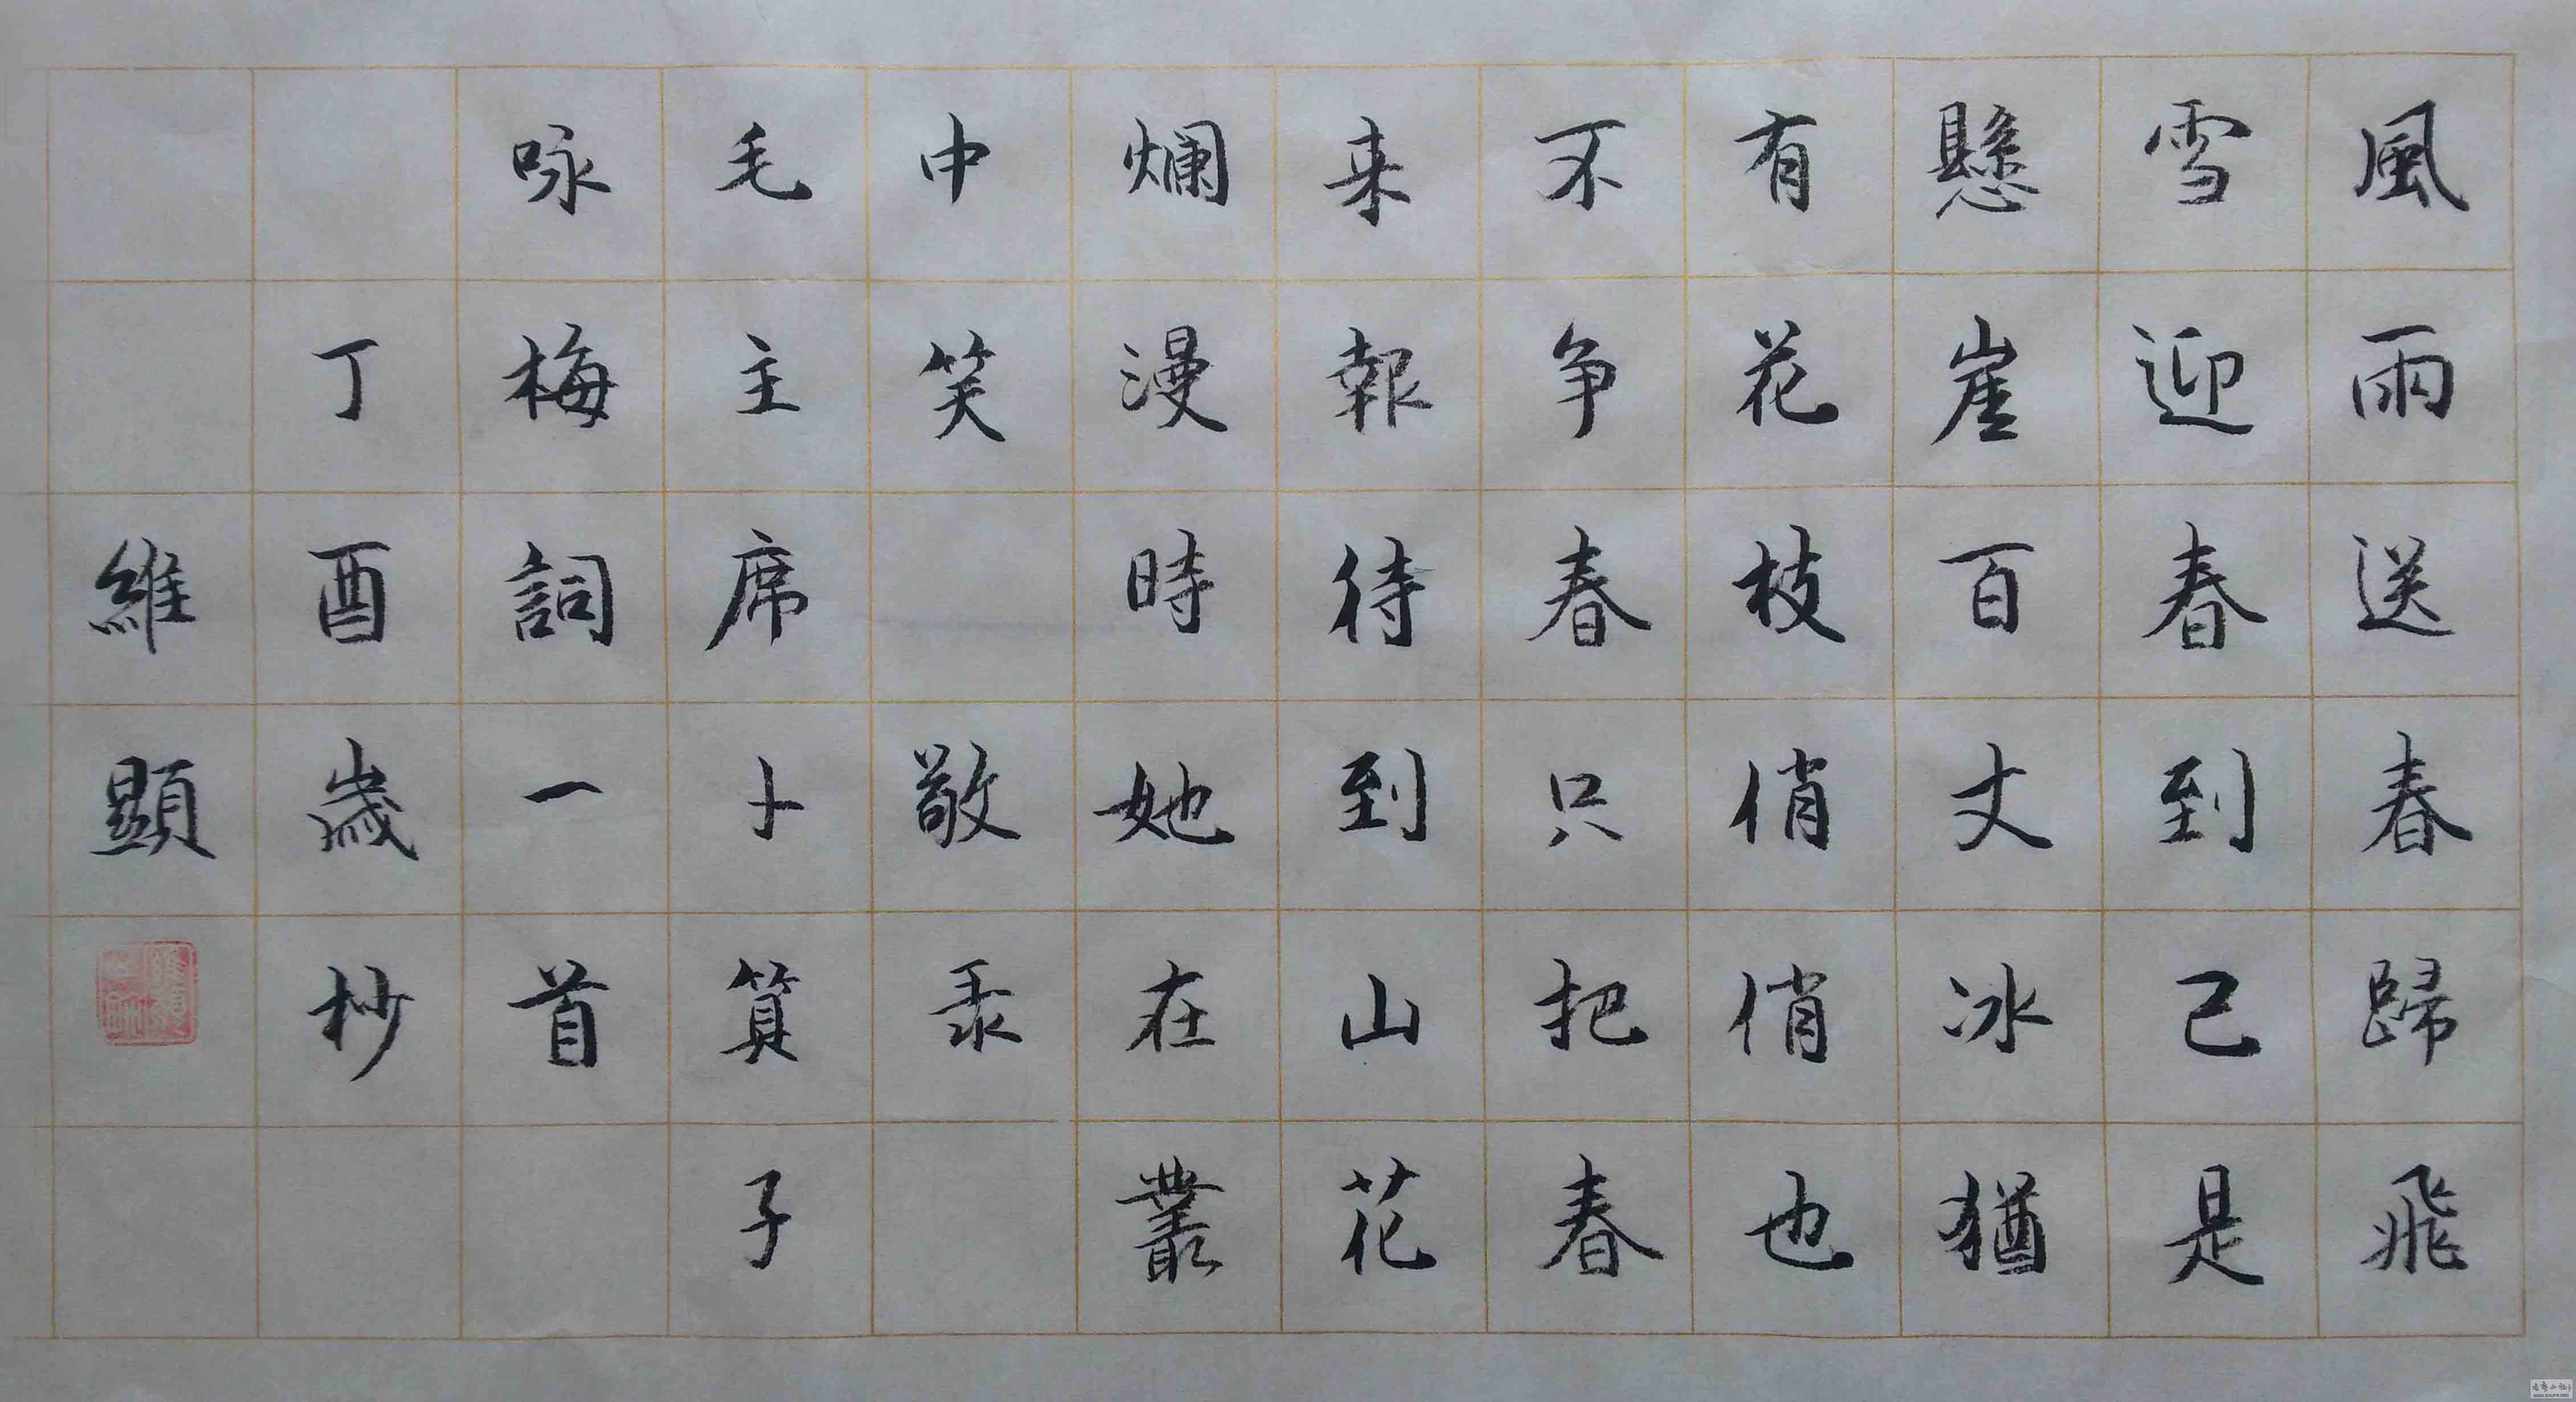 風雨送春歸飛
雪迎春到已是
懸崖百丈冰猶
有花枝俏俏也
不争春只把春
来報待到山花
爛漫時她在叢
中笑 敬录
毛主席卜算子
咏梅詞一首
丁酉歲杪
維顯